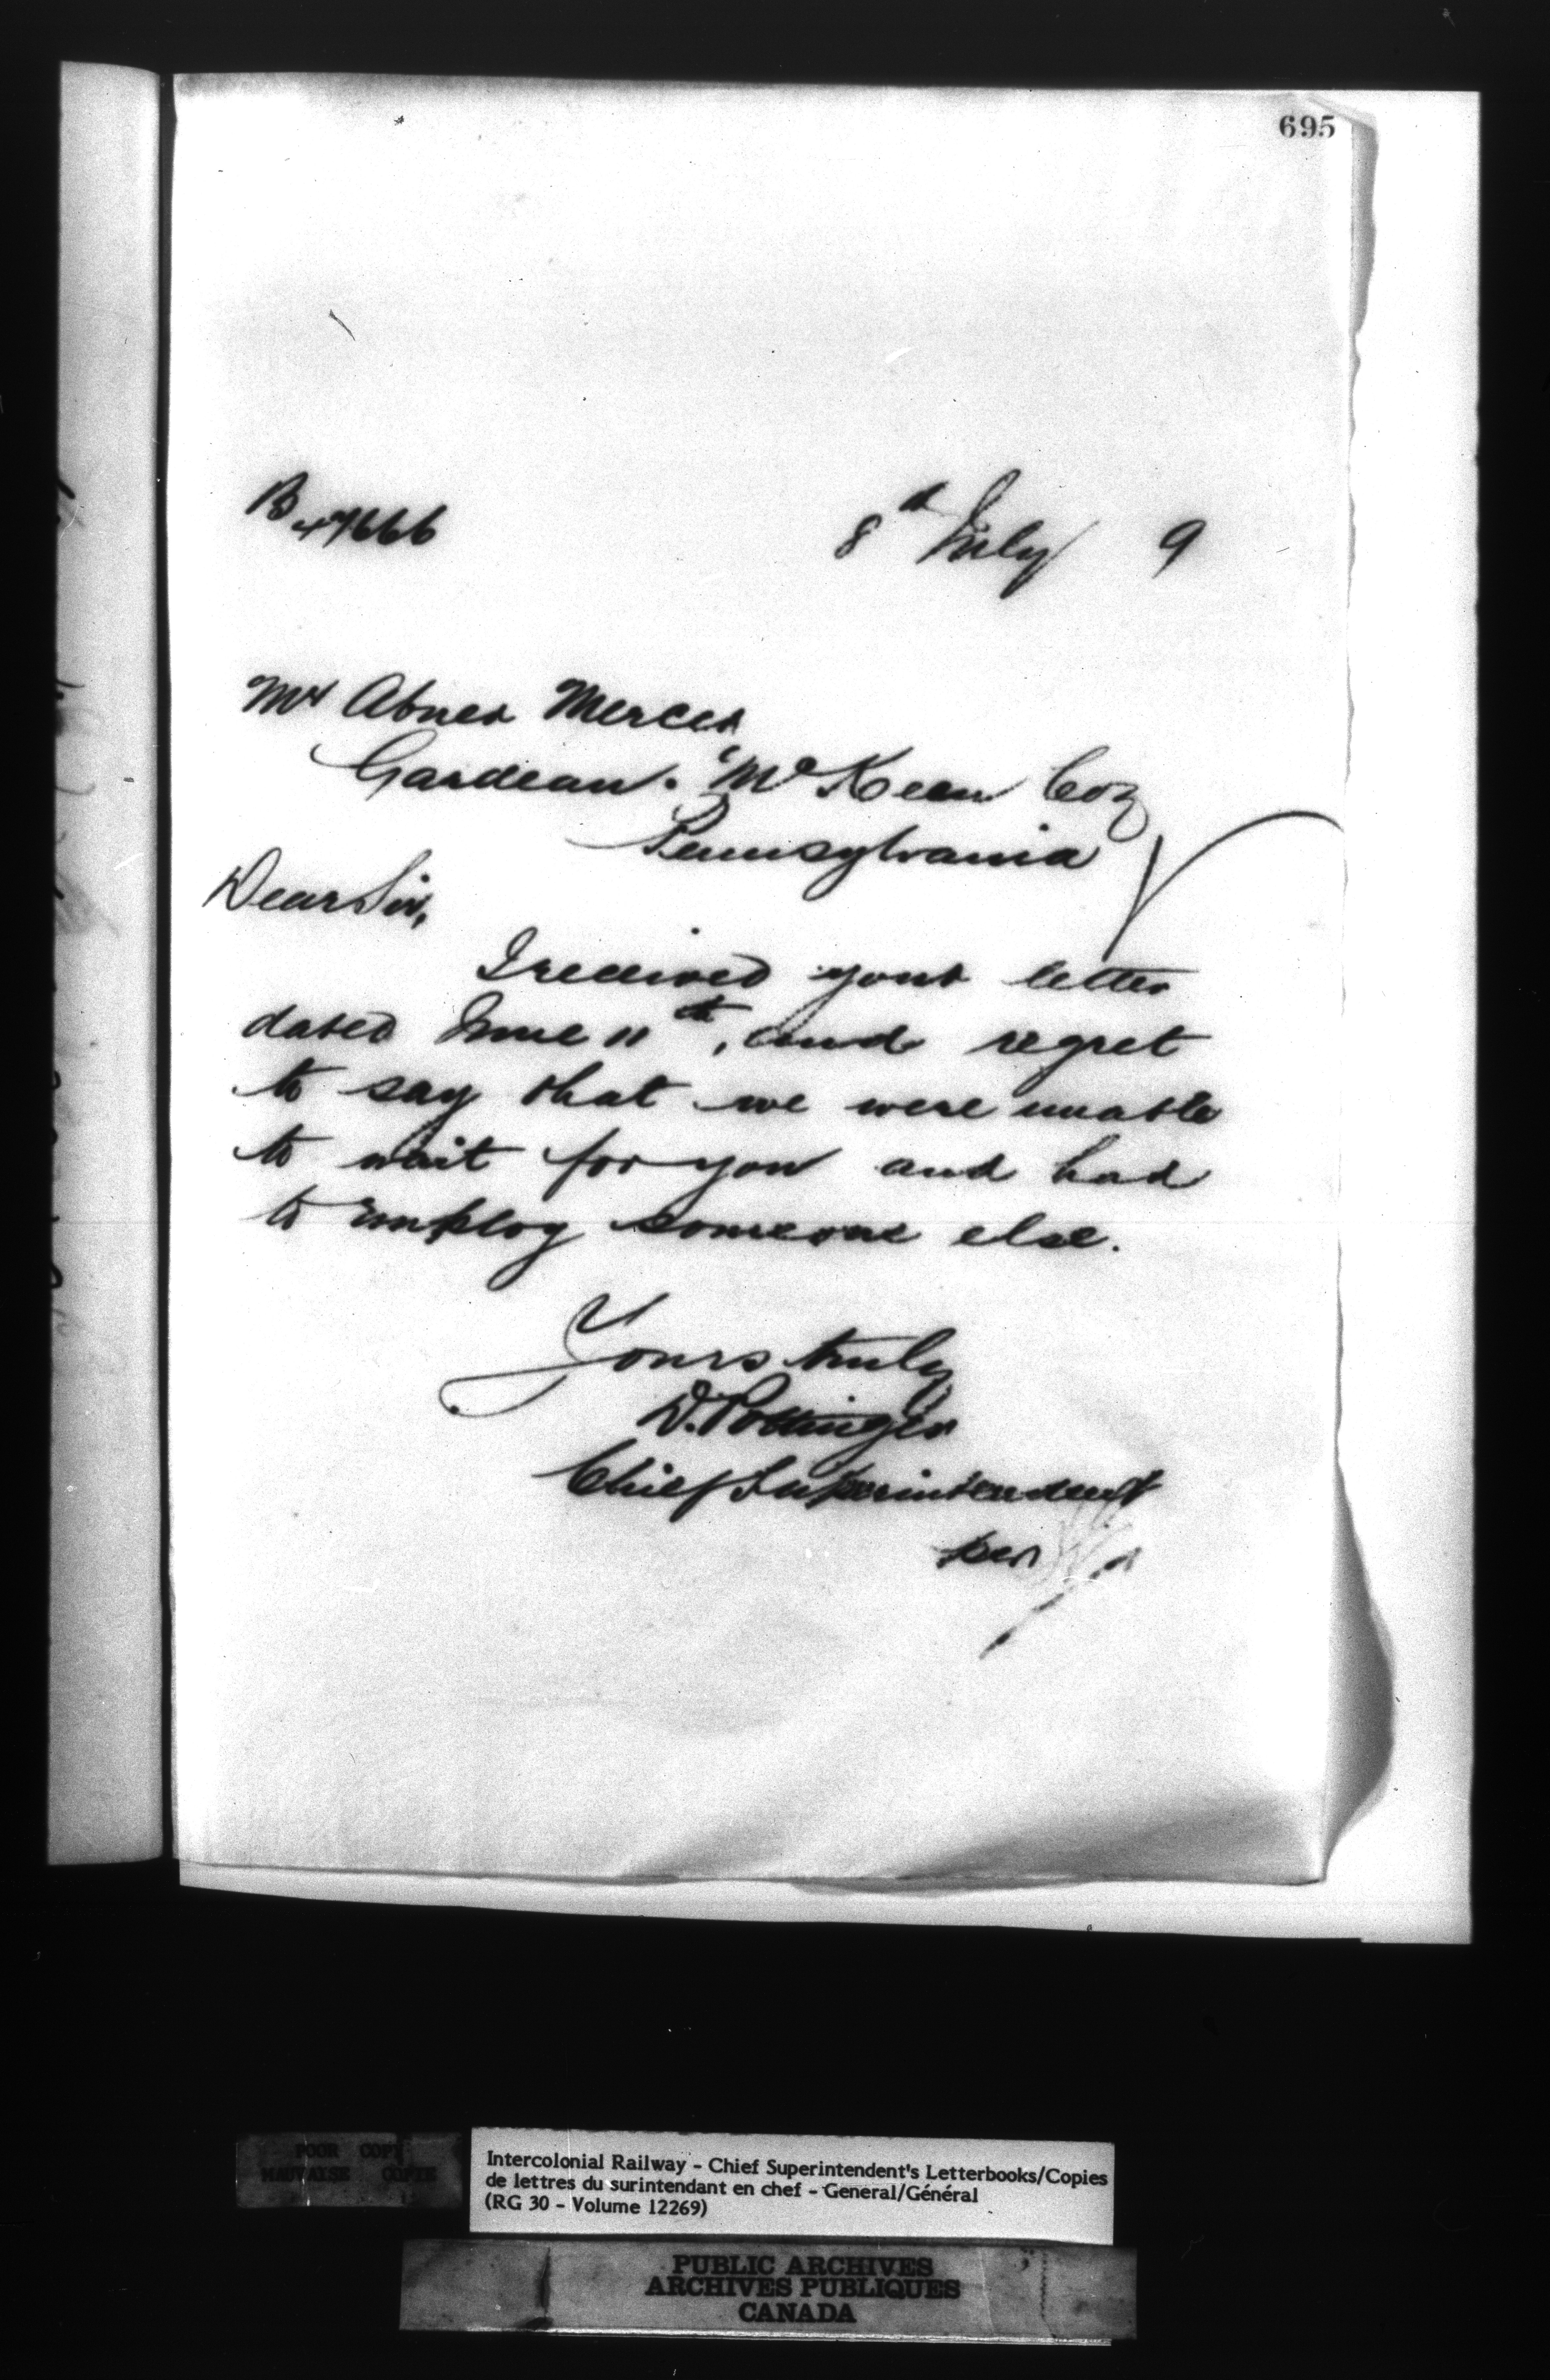 695
8th July 9
Mr Abner Mercer
Gardeau. McKean Coy
Pennsylvania
Dear Sir,
I received your letter
dated June 11th, and regret
to say that we were unable
to wait for you and had
to employ someone else.
Yours truly
D. Pottinger
Chief Superintendent
per
POOR COPY
MAUVAISE COPIE
Intercolonial Railway - Chief Superintendent's Letterbooks/Copies
de lettres du surintendant en chef - General/Général
(RG 30 - Volume 12269)
PUBLIC ARCHIVES
ARCHIVES PUBLIQUES
CANADA